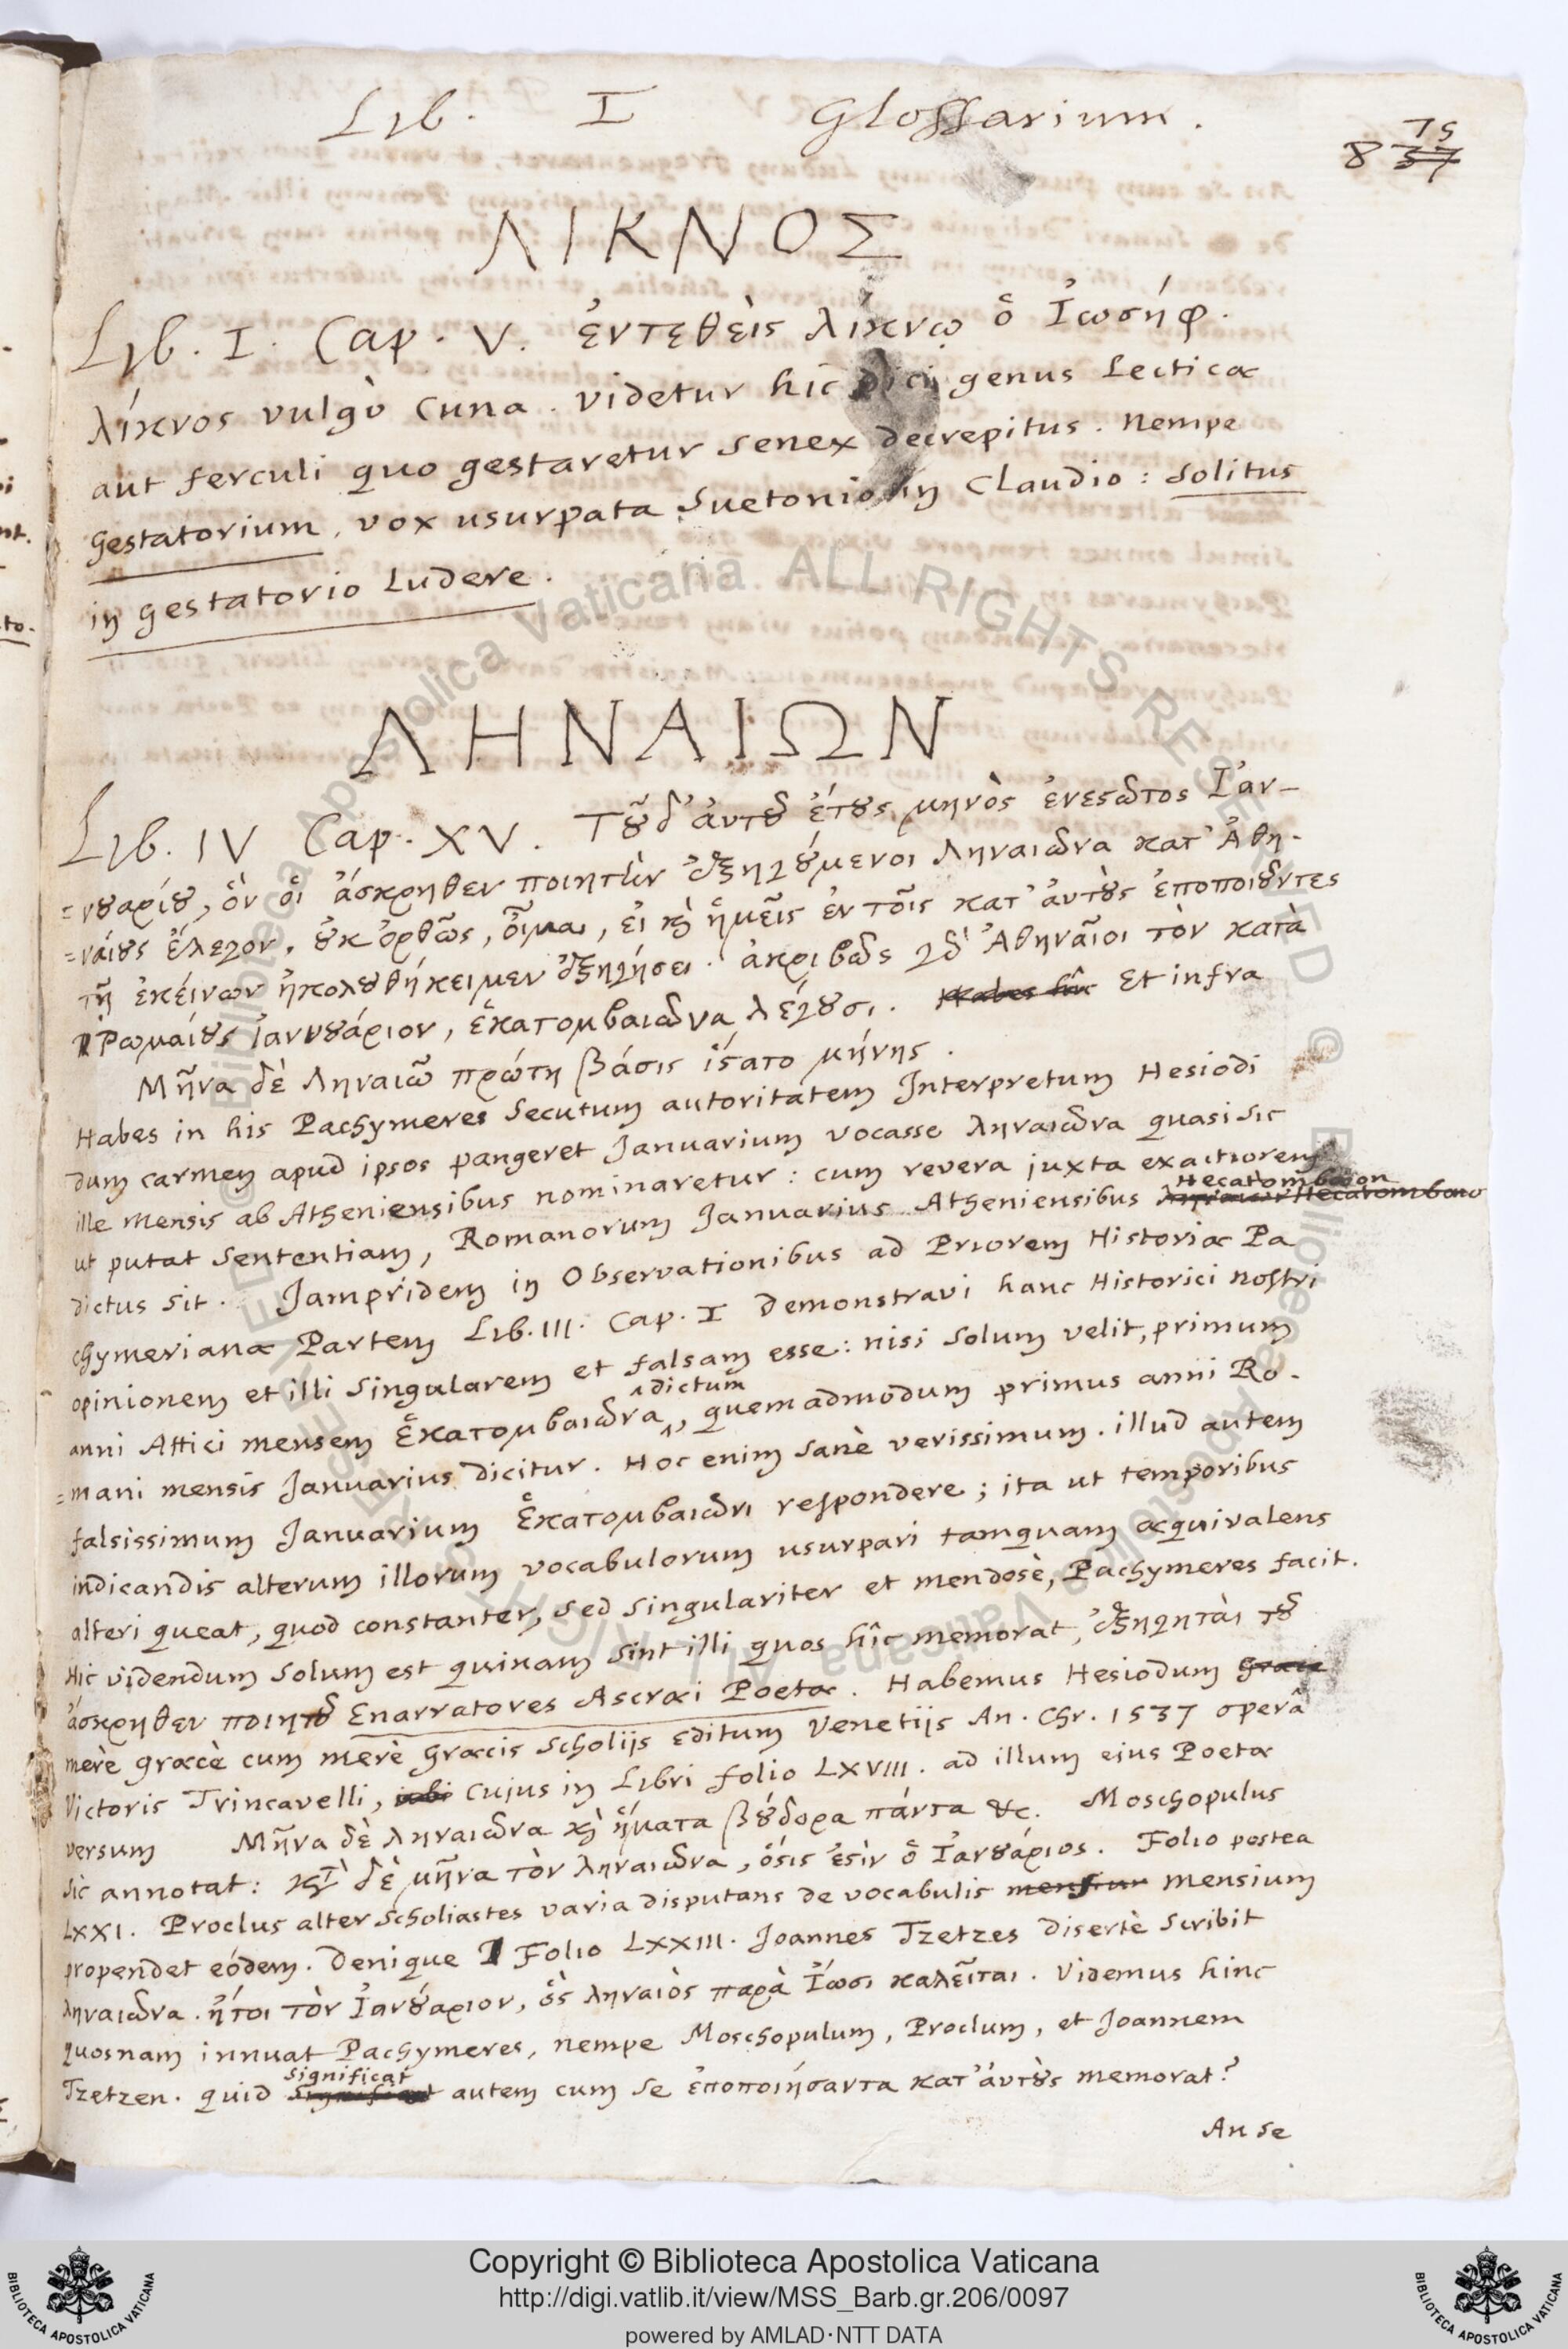 Lib. I Glossarium.
75
8 37
ΛΙΚΝΟΣ
Lib. I. Cap. V. ἐντεθεὶς λίκνῳ ὁ Ἰωσήφ.
λίκνος vulgò cuna. videtur hic dici genus Lecticæ
aut ferculi quo gestaretur senex decrepitus. Nempe
gestatorium, vox usurpata Suetonio in Claudio: solitus
in gestatorio Ludere.
ΛΗΝΑΙΩΝ
Lib. IV Cap. XV. Τοῦ δ' αὐτοῦ ἔτους μηνὸς ἐνεστῶτος Ἰαν-
=νουαρίου, ὃν οἱ ἄσκρηθεν ποιητὴν ἐξηγούμενοι Ληναιῶνα κατ' Ἀθη-
=ναίους ἔλεγον, οὐκ ὀρθῶς, οἶμαι, εἰ καὶ ἡμεῖς ἐν τοῖς κατ' αὐτοὺς ἐποποιοῦντες
τῇ ἐκείνων ἠκολουθήκειμεν ἐξηγήσει. ἀκριβῶς γὰρ Ἀθηναῖοι τὸν κατὰ
Ῥωμαίους Ἰαννουάριον, ἑκατομβαιῶνα λέγουσι. Habes hîc Et infra
Μῆνα δὲ Ληναιῶ πρώτη βάσις ἵστατο μήνης.
Habes in his Pachymeres secutum autoritatem Interpretum Hesiodi
dum carmen apud ipsos pangeret Januarium vocasse ληναιῶνα quasi sic
ille mensis ab Atheniensibus nominaretur: cum revera juxta exactiorem
Hecatombæon
ut putat sententiam, Romanorum Januarius Atheniensibus
dictus sit. Jampridem in Observationibus ad Priorem Historiæ Pa
chymerianæ Partem Lib. III. Cap. I Demonstravi hanc Historici nostri
opinionem et illi singularem et falsam esse: nisi solum velit, primum
dictum
anni Attici mensem ἑκατομβαιῶνα, quemadmodum primus anni Ro-
=mani mensis Januarius dicitur. Hoc enim sanè verissimum. illud autem
falsissimum Januarium ἑκατομβαιῶνι respondere; ita ut temporibus
indicandis alterum illorum vocabulorum usurpari tamquam æquivalens
alteri queat, quod constanter, sed singulariter et mendosè, Pachymeres facit.
Hic videndum solum est quinam sint illi quos hîc memorat, ἐξηγηταὶ τοῦ
ἄσκρηθεν ποιητοῦ Enarratores Ascræi Poetæ. Habemus Hesiodum græcè
merè græcè cum merè græcis scholijs editum Venetijs An. Chr. 1537 operâ
Victoris Trincavelli, ubi cujus in Libri folio LXVIII. ad illum ejus Poetæ
versum Μῆνα δὲ ληναιῶνα κακ' ἤματα βούδορα πάντα &c. Moschopulus
sic annotat: κατὰ δὲ μῆνα τὸν ληναιῶνα, ὅστις ἐστὶν ὁ Ἰανουάριος. Folio postea
LXXI. Proclus alter scholiastes varia disputans de vocabulis mensium mensium
propendet eódem. Denique Folio LXXIII. Joannes Tzetzes disertè scribit
ληναιῶνα. ἤτοι τὸν Ἰανουάριον, ὃς ληναιὸς παρὰ Ἴωσι καλεῖται. Videmus hinc
quosnam innuat Pachymeres, nempe Moschopulum, Proclum, et Joannem
significat
Tzetzen. quid significat autem cum se ἐποποιήσαντα κατ' αὐτοὺς memorat?
An se
Copyright © Biblioteca Apostolica Vaticana
http://digi.vatlib.it/view/MSS_Barb.gr.206/0097
powered by AMLAD·NTT DATA
BIBLIOTECA APOSTOLICA VATICANA
BIBLIOTECA APOSTOLICA VATICANA
© Biblioteca Apostolica Vaticana ALL RIGHTS RESERVED © Biblioteca Apostolica Vaticana ALL RIGHTS RESERVED